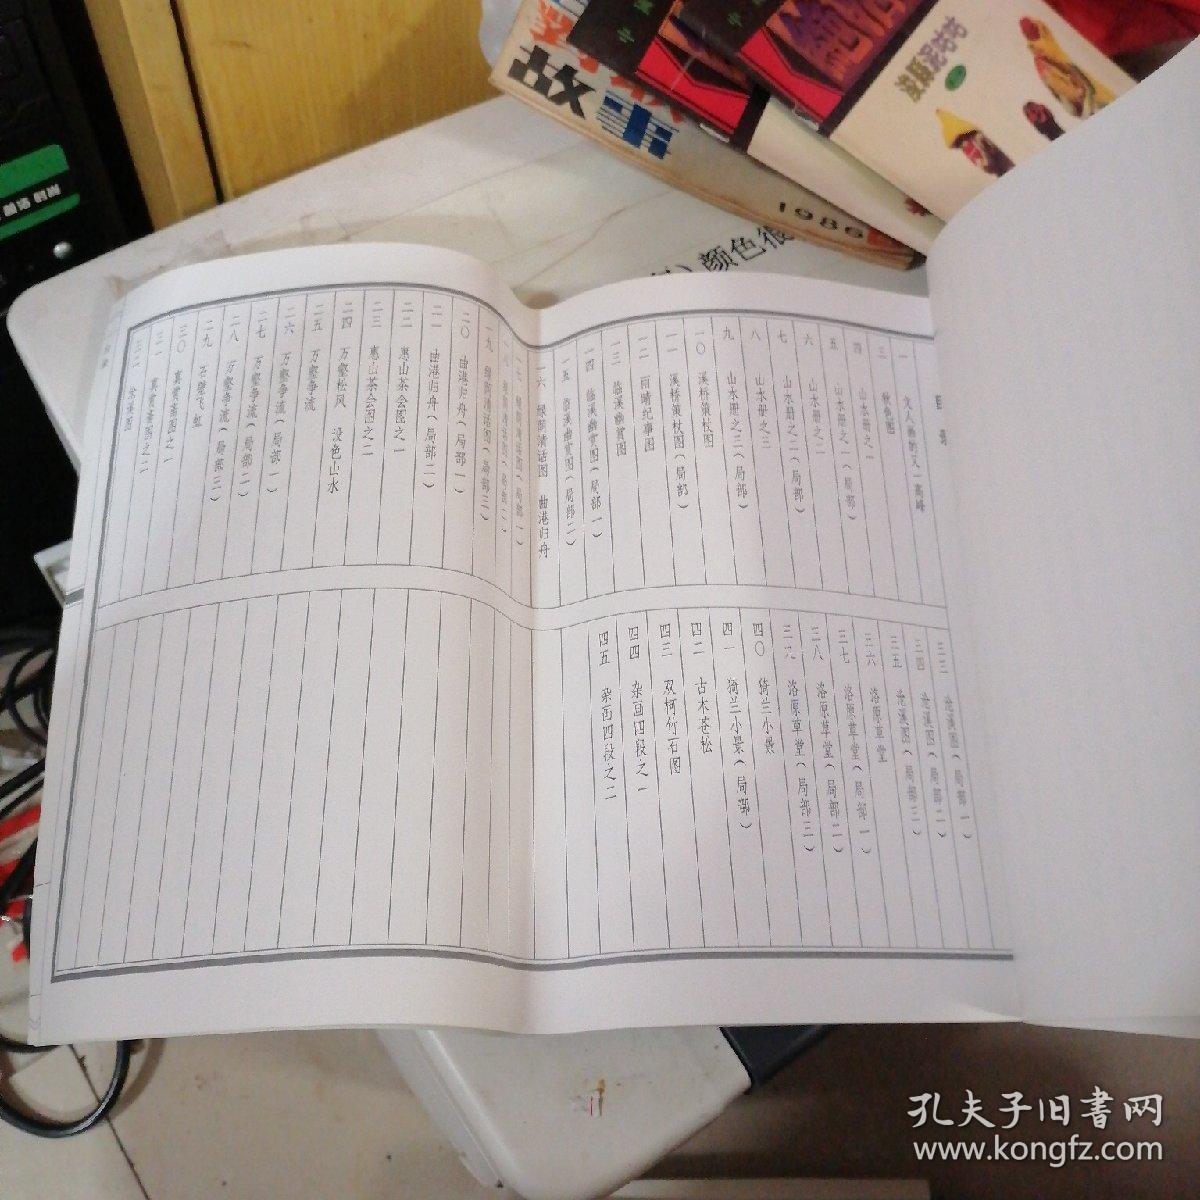 目录
一 文人画的又一高峰
三 秋色图
四 山水册之一
五 山水册之一(局部)
六 山水册之二
七 山水册之二(局部)
八 山水册之三
九 山水册之三(局部)
一〇 溪桥策杖图
一一 溪桥策杖图(局部)
一二 雨晴纪事图
一三 临溪幽赏图
一四 临溪幽赏图(局部一)
一五 临溪幽赏图(局部二)
一六 绿荫清话图 曲港归舟
一七 绿荫清话图(局部一)
一八 绿荫清话图(局部二)
一九 绿荫清话图(局部三)
二〇 曲港归舟(局部一)
二一 曲港归舟(局部二)
二二 惠山茶会图之一
二三 惠山茶会图之二
二四 万壑松风 设色山水
二五 万壑争流
二六 万壑争流(局部一)
二七 万壑争流(局部二)
二八 万壑争流(局部三)
二九 石壁飞虹
三〇 真赏斋图之一
三一 真赏斋图之二
三二 沧溪图
三三 沧溪图(局部一)
三四 沧溪图(局部二)
三五 沧溪图(局部三)
三六 洛原草堂
三七 洛原草堂(局部一)
三八 洛原草堂(局部二)
三九 洛原草堂(局部三)
四〇 猗兰小景
四一 猗兰小景(局部)
四二 古木苍松
四三 双柯竹石图
四四 杂画四段之一
四五 杂画四段之二
故事
1986
浚县泥咕咕
颜色很
孔夫子旧書网
www.kongfz.com